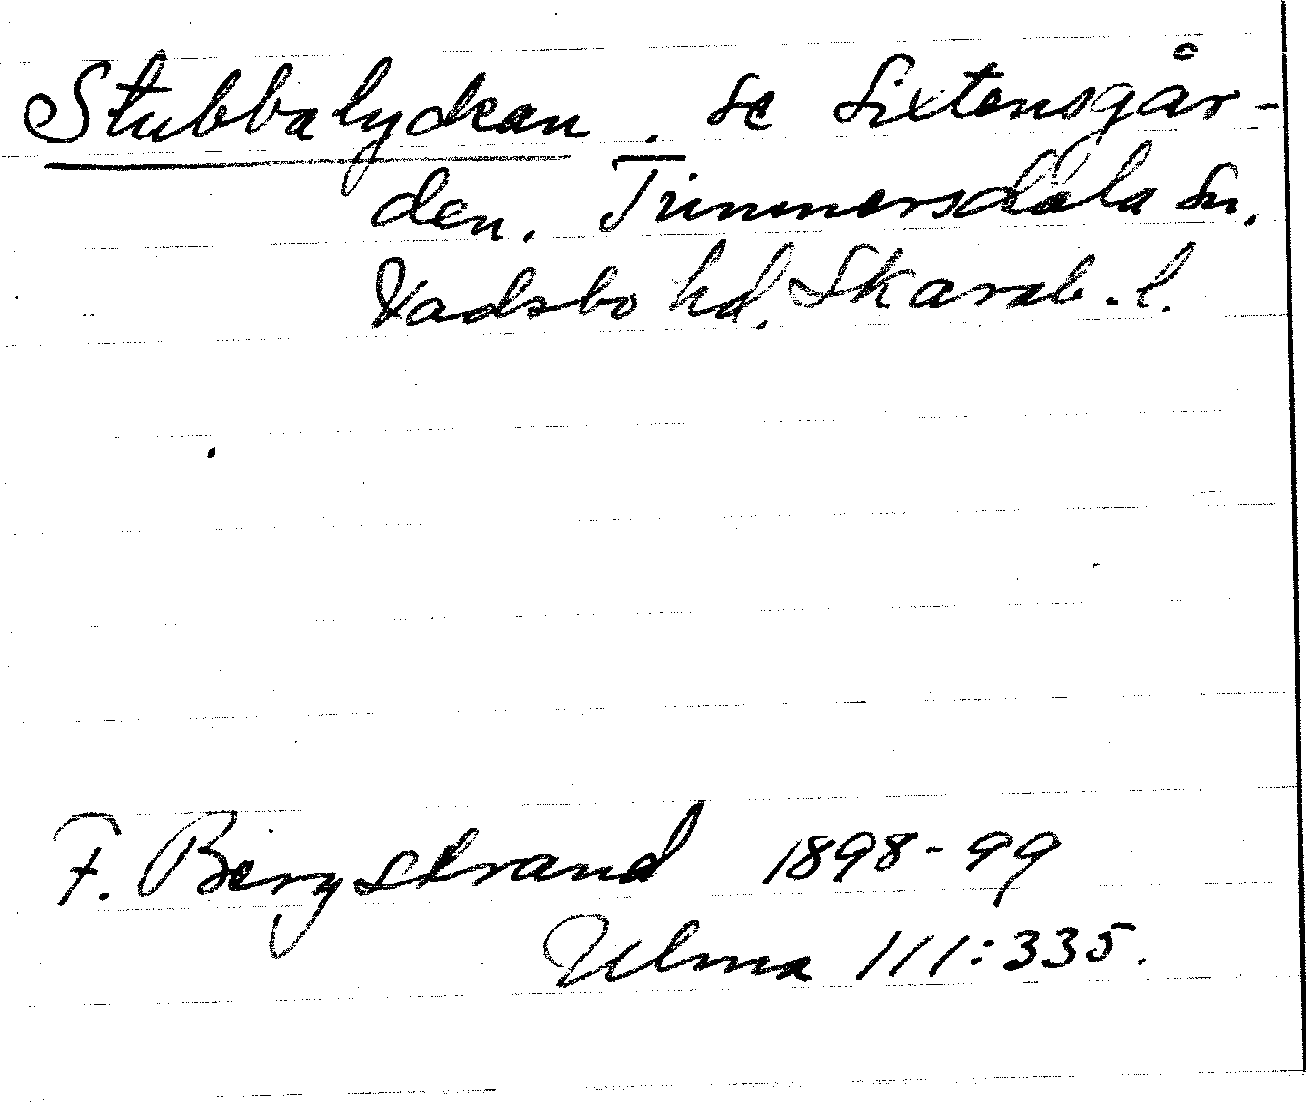 Stubbalyckan. se Sixtensgår-
den. Timmersdala sn.
Vadsbo hd. Skarab. l.
F. Bergstrand 1898-99
Ulma 111:335.